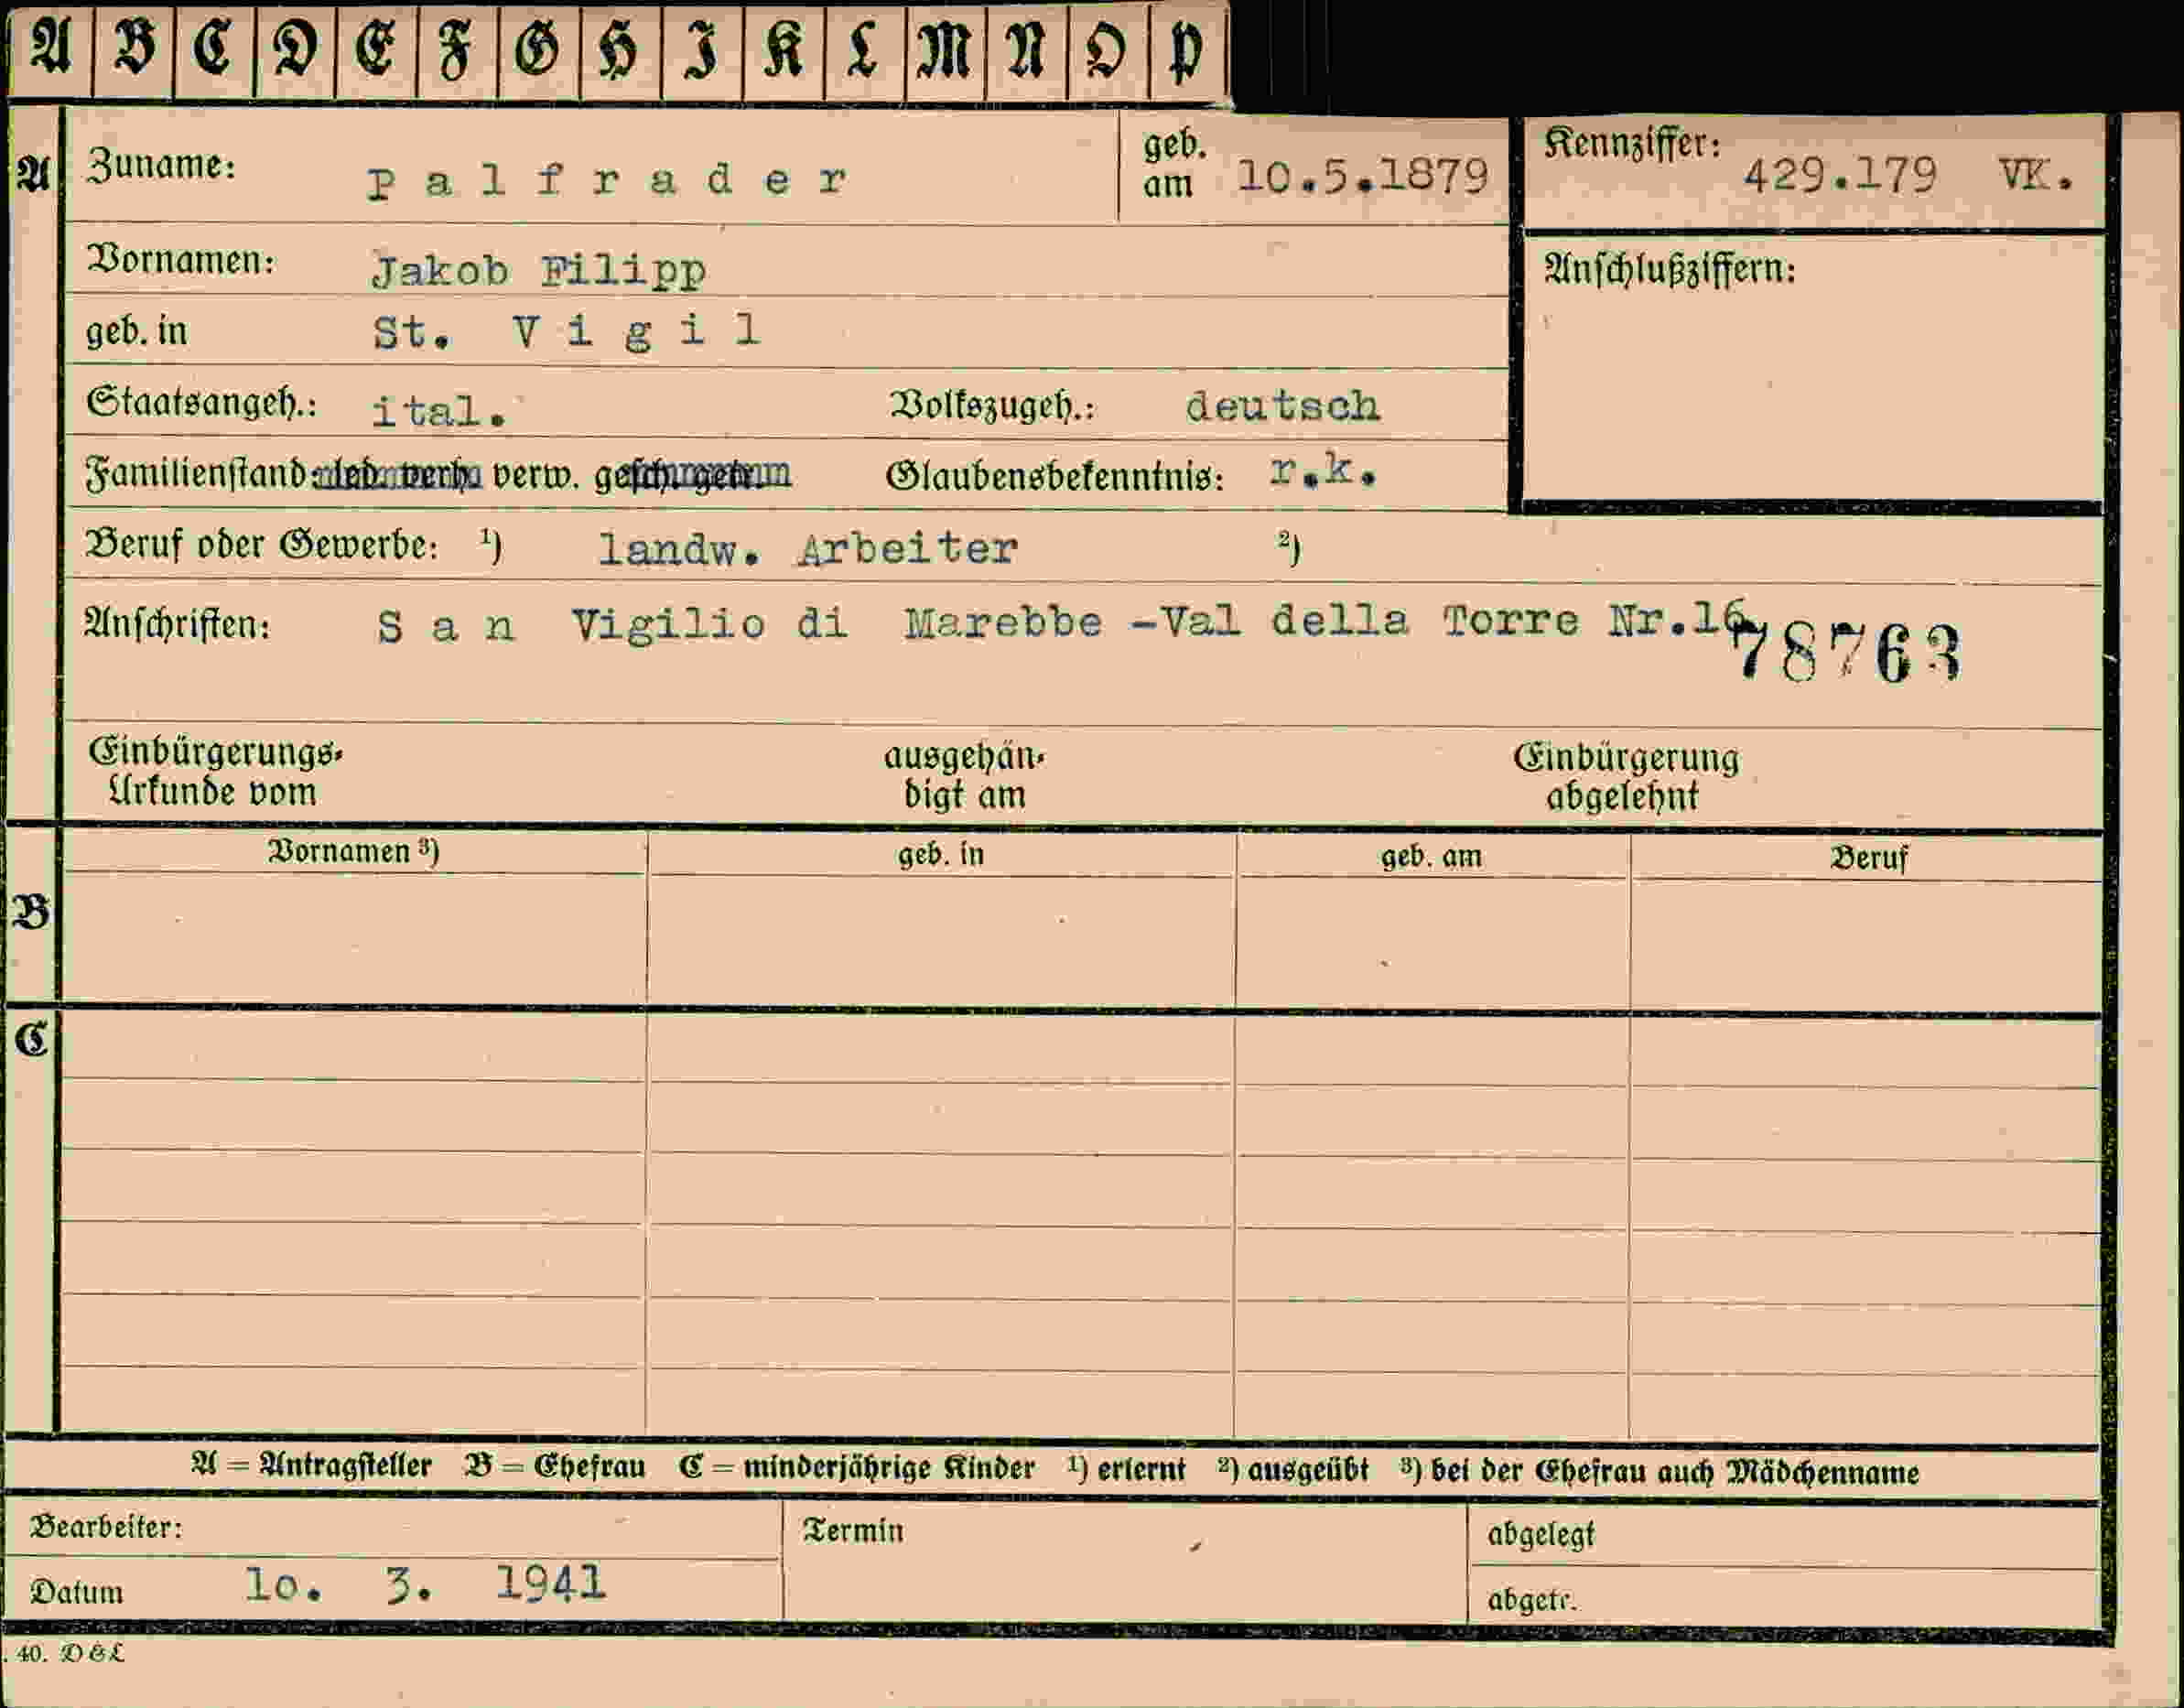 A B C D E F G H I K L M N O P
A Zuname: Palfrader geb. am 10.5.1879 Kennziffer: 429.179 VK.
Vornamen: Jakob Filipp Anschlußziffern:
geb. in St. Vigil
Staatsangeh.: ital. Volkszugeh.: deutsch
Familienstand: led. verh. verw. gesch. getr. Glaubensbekenntnis: r.k.
Beruf oder Gewerbe: ¹) landw. Arbeiter ²)
Anschriften: San Vigilio di Marebbe -Val della Torre Nr.16
78763
Einbürgerungs-Urkunde vom ausgehän-digt am Einbürgerung abgelehnt
Vornamen ³) geb. in geb. am Beruf
B
C
A = Antragsteller B = Ehefrau C = minderjährige Kinder ¹) erlernt ²) ausgeübt ³) bei der Ehefrau auch Mädchenname
Bearbeiter: Termin abgelegt
Datum 1o. 3. 1941 abgetr.
. 40. D & L